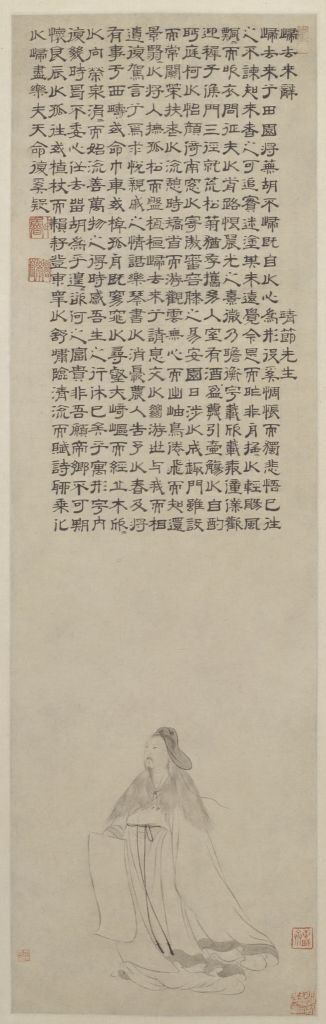 歸去來辭
靖節先生
歸去來兮田園將蕪胡不歸既自以心為形役奚惆悵而獨悲悟已往
之不諫知來者之可追實迷塗其未遠覺今是而昨非舟搖以輕颺風
飄而吹衣問征夫以前路恨晨光之熹微乃瞻衡宇載欣載奔僮僕歡
迎稚子候門三徑就荒松菊猶存攜幼入室有酒盈樽引壺觴以自酌
眄庭柯以怡顏倚南窗以寄傲審容膝之易安園日涉以成趣門雖設
而常關策扶老以流憩時矯首而游觀雲無心而出岫鳥倦飛而知還
景翳以將入撫孤松而盤桓歸去來兮請息交以絕游世與我而相
遺復駕言兮焉求悅親戚之情話樂琴書以消憂農人告予以春及將
有事于西疇或命巾車或棹孤舟既窈窕以尋壑亦崎嶇而經丘木欣
以向榮泉涓而始流善萬物之得時感吾生之行休已矣乎寓形宇內
復幾時曷不委心任去留胡為乎遑欲何之富貴非吾願帝鄉不可期
懷良辰以孤往或植杖而耘耔登東皋以舒嘯臨清流而賦詩聊乘化
以歸盡樂夫天命復奚疑